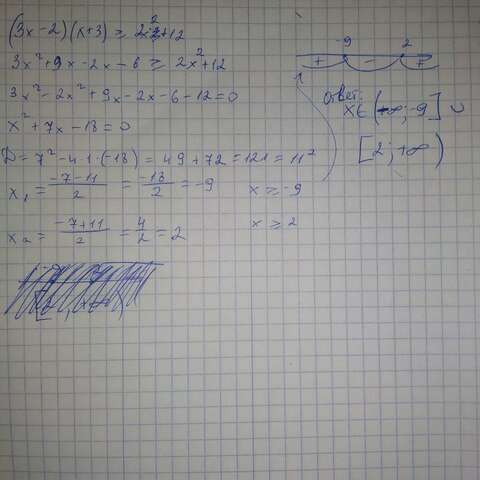 (3x-2)(x+3) ≥ 2x²+12
3x²+9x-2x-6 ≥ 2x²+12
3x²-2x²+9x-2x-6-12=0
x²+7x-18=0
D=7²-4·1·(-18)=49+72=121=11²
x₁ = (-7-11)/2 = -18/2 = -9
x ≥ -9
x₂ = (-7+11)/2 = 4/2 = 2
x ≥ 2
-9 2
+ - +
Ответ:
x∈(-∞;-9] ∪
[2;+∞)